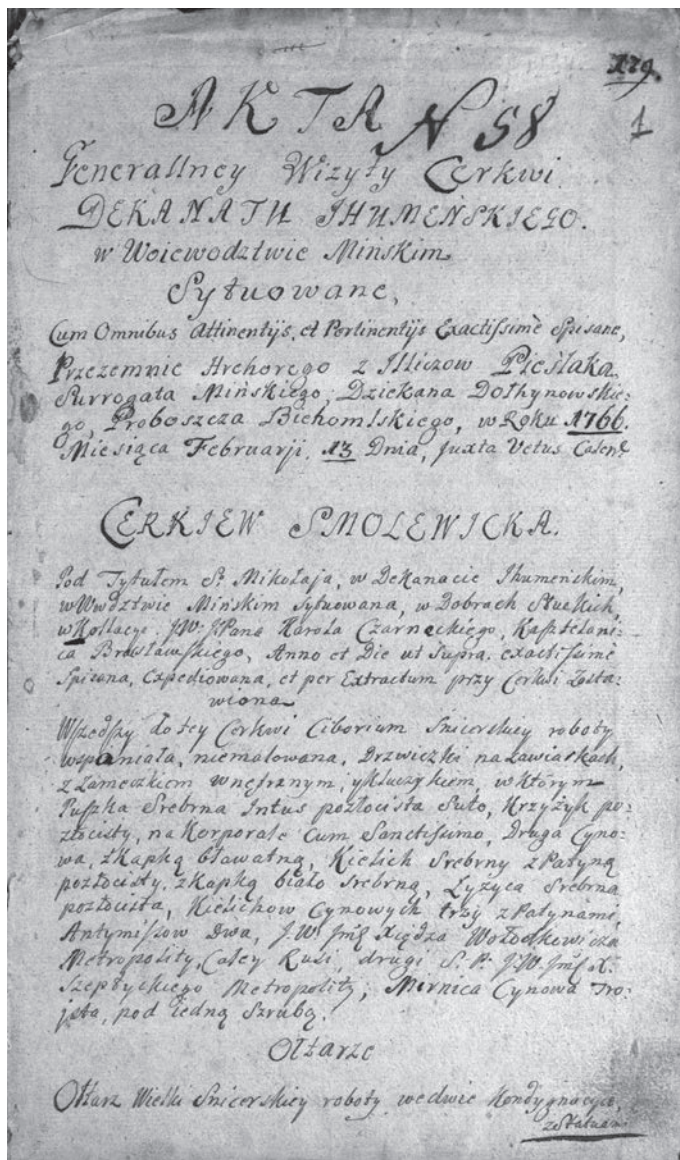 179.
1
AKTA N 58
Generallney Wizyty Cerkwi
DEKANATU IHUMEŃSKIEGO.
w Woiewodztwie Mińskim
Sytuowane,
Cum Omnibus Attinentijs, et Pertinentijs Exactissimè Spisane,
Przezemnie Hrehorego z Illiczow Pieślaka
Surrogata Mińskiego, Dziekana Dołhynowskie-
go, Proboszcza Bichomlskiego, w Roku 1766.
Miesiąca Februarji, 13 Dnia, juxta Vetus Calend:
CERKIEW SMOLEWICKA.
Pod Tytułem S. Mikołaja, w Dekanacie Ihumeńskim,
w Wwdztwie Mińskim Sytuowana, w Dobrach Słuckich,
w Kollacyi J.W. JPana Karola Czarneckiego, Kasztelani-
ca Brasławskiego, Anno et Die ut Supra. exactissimè
Spisana, Expediowana, et per Extractum przy Cerkwi Zosta-
wiona
Wszedszy do tey Cerkwi Ciborium Snicerskiey roboty
wspaniała, niemalowana, Drzwiczki na zawiaskach,
z Zameczkiem wnętranym, y kluczykiem, w ktorym
Puszka Srebrna Intus pozłocista Suto, Krzyżyk po-
złocisty, na Korporale Cum Sanctissimo, Druga Cyno-
wa, z Kapką bławatną, Kielich Srebrny z Patyną
pozłocisty, z Kapką biało srebrną, Łyzyca Srebrna
pozłocista, Kielichow Cynowych trzy z Patynami,
Antymissow Dwa, J.W. Jmś Xiędza Wołodkowicza
Metropolity, Całey Rusi, drugi S.P. J.W. Jmś X.
Szeptyckiego Metropolity; Mirnica Cynowa Tro-
jsta, pod iedną Szrubą.
Ołtarze
Ołtarz Wielki Snicerskiey roboty we dwie Kondygnacye,